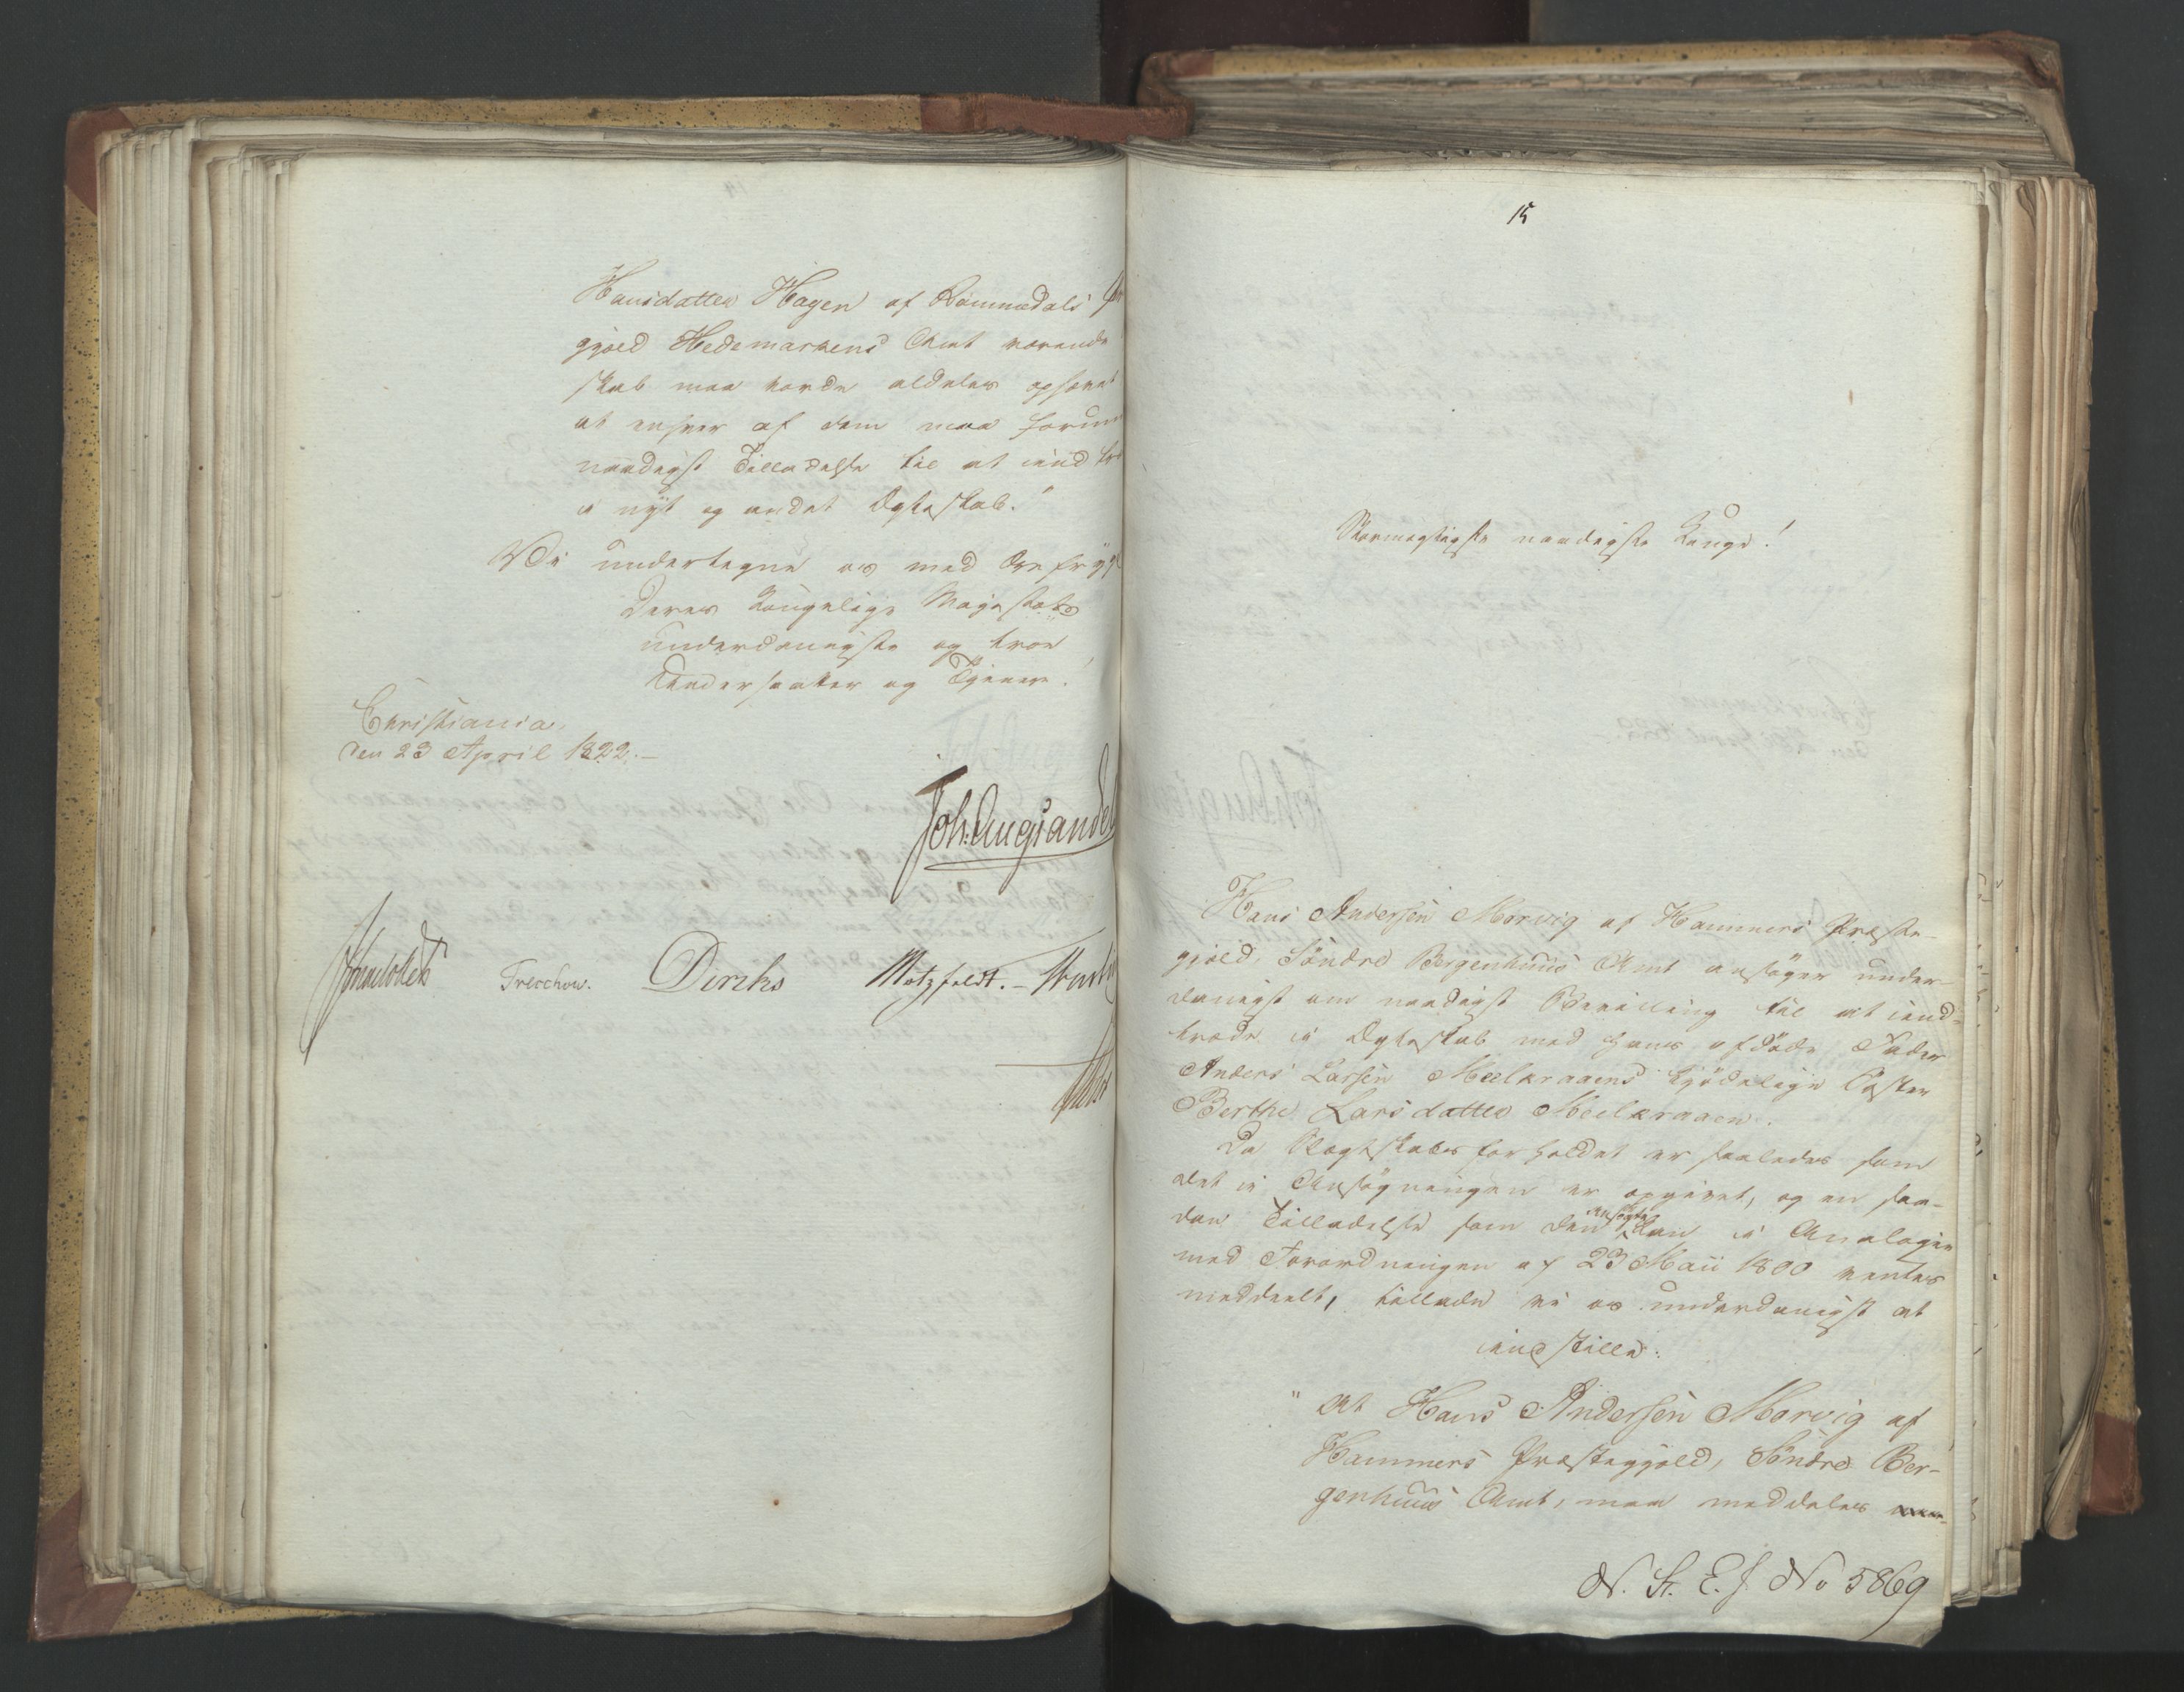 Hansdatter Hagen af Romnedals
gjeld Hedemarkens Amt værende
skab maa vorde aldeles ophævet
at enhver af dem maa forun
naadigst Tilladelse til at indtræ
i nyt og andet Ægteskab."
Vi undertegne os med Ærefrygt
Deres Kongelige Majestæts
underdanigste og troe
Undersaatter og Tjenere.
Christiania,
den 23 April 1822.-
Joh. Aug. Sandel
Treschow. Diriks Motzfeldt.-
15
Stormægtigste naadigste Konge!
Hans Andersen Morvig af Hammers Præste-
gjeld, Söndre Bergenhuus Amt ansöger under-
danigst om naadigst Bevilling til at ind-
træde i Ægteskab med hans afdöde Fader
Anders Larsen Meelkraaens kjödelige Söster
Berthe Larsdatter Meelkraaen.
Da Slægtskabsforholdet er saaledes som
det i Ansögningen er opgivet, og en saa-
dan Tilladelse som den ansögte kan i Analogie
med Forordningen af 23 Maii 1800 ventes
meddeelt, tillade vi os underdanigst at
indstille:
"At Hans Andersen Morvig af
Hammers Præstegjeld, Söndre Ber-
genhuus Amt, maa meddeles
N. St. E. J. No 5869